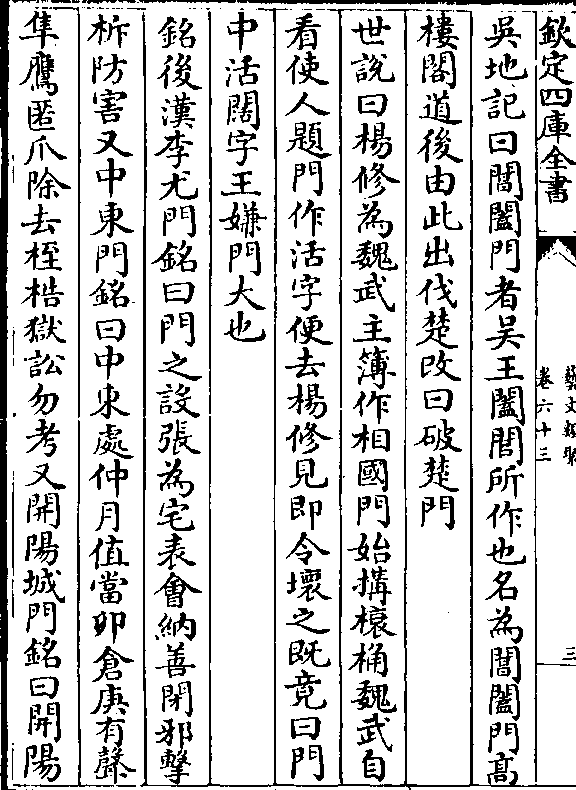 欽定四庫全書
藝文類聚
卷六十三
三
吳地記曰閶闔門者吴王闔閭所作也名為閶闔門髙
樓閣道後由此出伐楚改曰破楚門
世說曰楊修為魏武主簿作相國門始搆榱桷魏武自
看使人題門作活字便去楊修見即令壊之既竟曰門
中活闊字王嫌門大也
銘後漢李尤門銘曰門之設張為宅表會納善閉邪擊
柝防害又中東門銘曰中東處仲月值當卯倉庚有聲
隼鷹匿爪除去桎梏獄訟勿考又開陽城門銘曰開陽